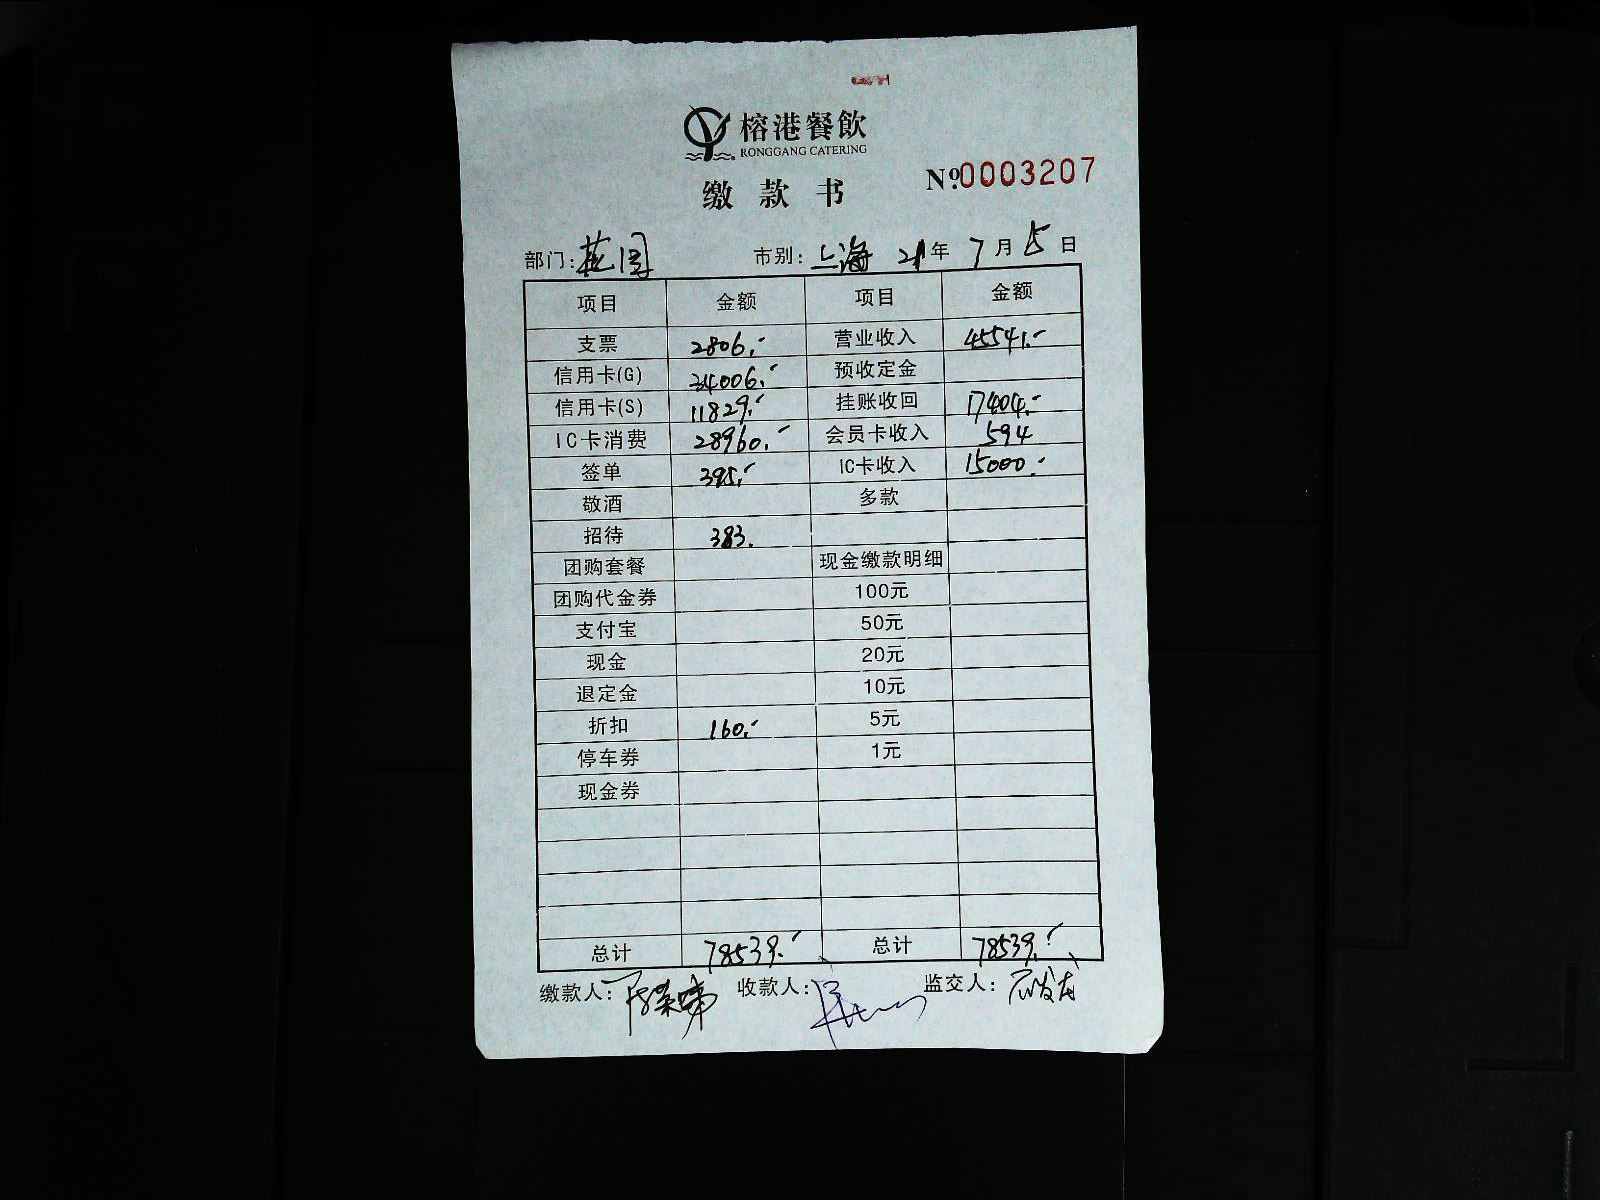 榕港餐飲
RONGGANG CATERING
缴款书
№0003207
部门: 花园 市别: 上海 21年 7月 5日
项目 金额 项目 金额
支票 2806.- 营业收入 45541.-
信用卡(G) 34006.- 预收定金
信用卡(S) 11829.- 挂账收回 17404.-
IC卡消费 28960.- 会员卡收入 594
签单 395.- IC卡收入 15000.-
敬酒 多款
招待 383.
团购套餐 现金缴款明细
团购代金券 100元
支付宝 50元
现金 20元
退定金 10元
折扣 160.- 5元
停车券 1元
现金券
总计 78539.- 总计 78539.-
缴款人: 收款人: 监交人: